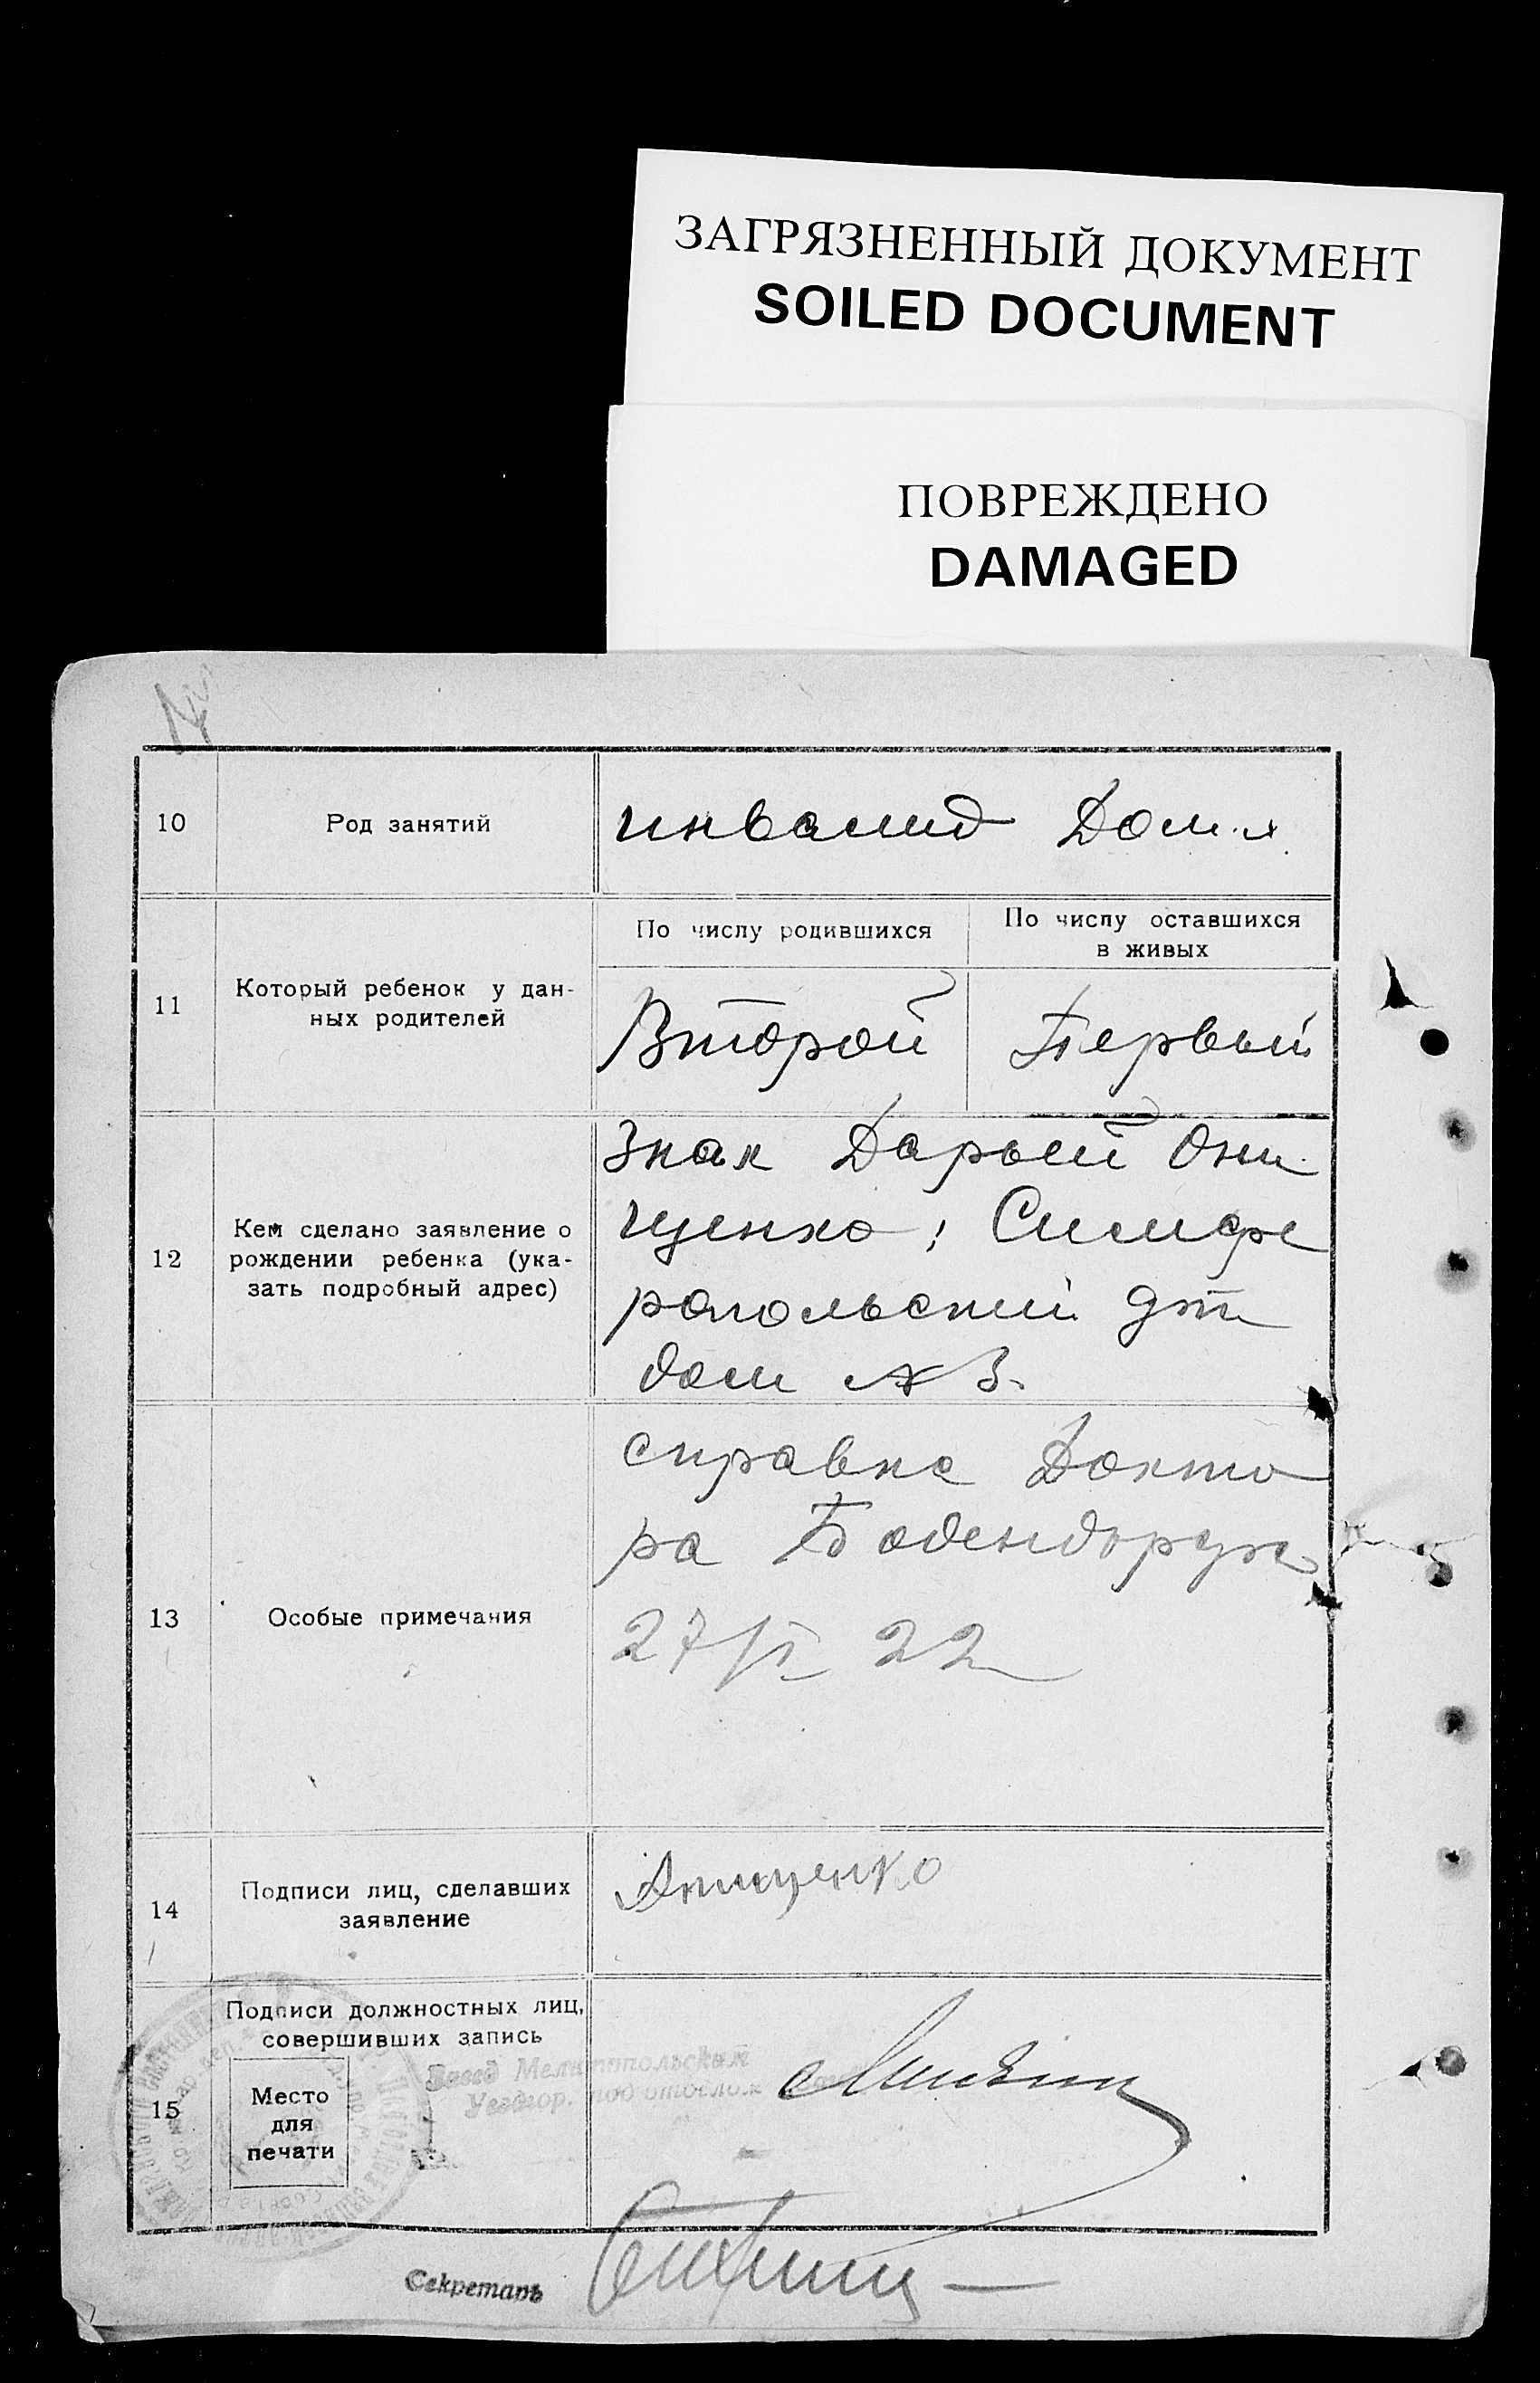 ЗАГРЯЗНЕННЫЙ ДОКУМЕНТ
SOILED DOCUMENT
ПОВРЕЖДЕНО
DAMAGED
10
Род занятий
инвалид Дом.х.
11
Который ребенок у дан-
ных родителей
По числу родившихся
Второй
По числу оставшихся
в живых
Первый
12
Кем сделано заявление о
рождении ребенка (ука-
зать подробный адрес)
Дарьей Они
щенко; Симфе
ропольский дет
дом № 3.
13
Особые примечания
справка Докто
ра Бодендорфа
27/V 22
14
Подписи лиц, сделавших
заявление
Анищенко
15
Подписи должностных лиц,
совершивших запись
Место
для
печати
Завед Мелитопольским
Уездгор. под отделом
Секретарь